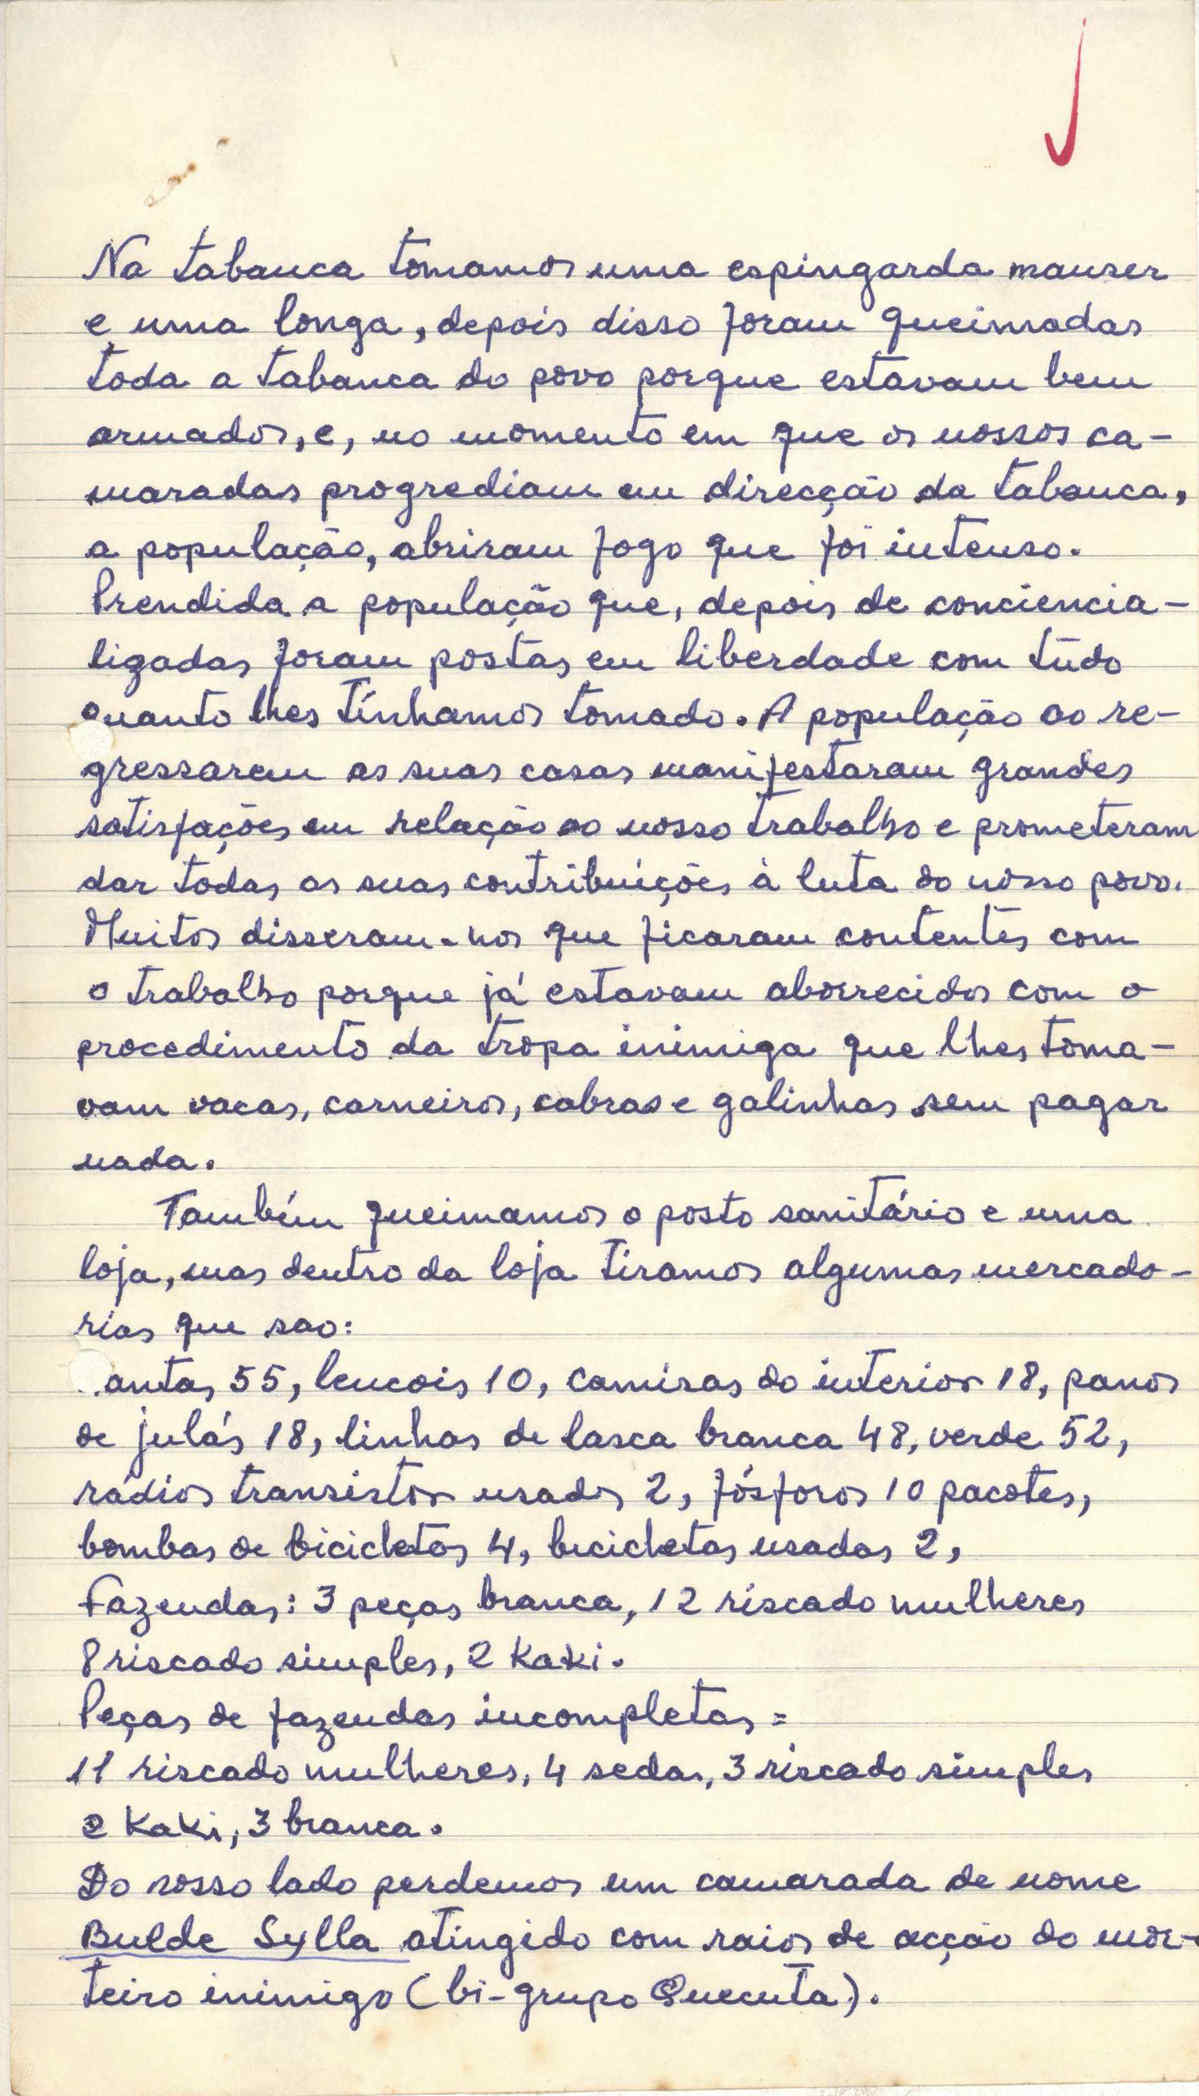 Na tabanca tomamos uma espingarda mauser
e uma longa, depois disso foram queimadas
toda a tabanca do povo porque estavam bem
armados, e, no momento em que os nossos ca-
maradas progrediam em direcção da tabanca,
a população, abriram fogo que foi intenso.
Prendida a população que, depois de conciencia-
ligadas foram postas em liberdade com tudo
quanto lhes tínhamos tomado. A população ao re-
gressarem as suas casas manifestaram grandes
satisfações em relação ao nosso trabalho e prometeram
dar todas as suas contribuições à luta do nosso povo.
Muitos disseram-nos que ficaram contentes com
o trabalho porque já estavam aborrecidos com o
procedimento da tropa inimiga que lhes toma-
vam vacas, carneiros, cabras e galinhas sem pagar
nada.
Também queimamos o posto sanitário e uma
loja, mas dentro da loja tiramos algumas mercado-
rias que sao:
antas 55, lencois 10, camisas do interior 18, panos
de julás 18, linhas de lasca branca 48, verde 52,
rádios transistor usados 2, fósforos 10 pacotes,
bombas de bicicletas 4, bicicletas usadas 2,
Fazendas: 3 peças branca, 12 riscado mulheres
8 riscado simples, 2 Kaki.
Peças de fazendas incompletas =
11 riscado mulheres, 4 sedas, 3 riscado simples
2 Kaki, 3 branca.
Do nosso lado perdemos um camarada de nome
Bulde Sylla atingido com raios de acção do mor-
teiro inimigo (bi-grupo Quecuta).